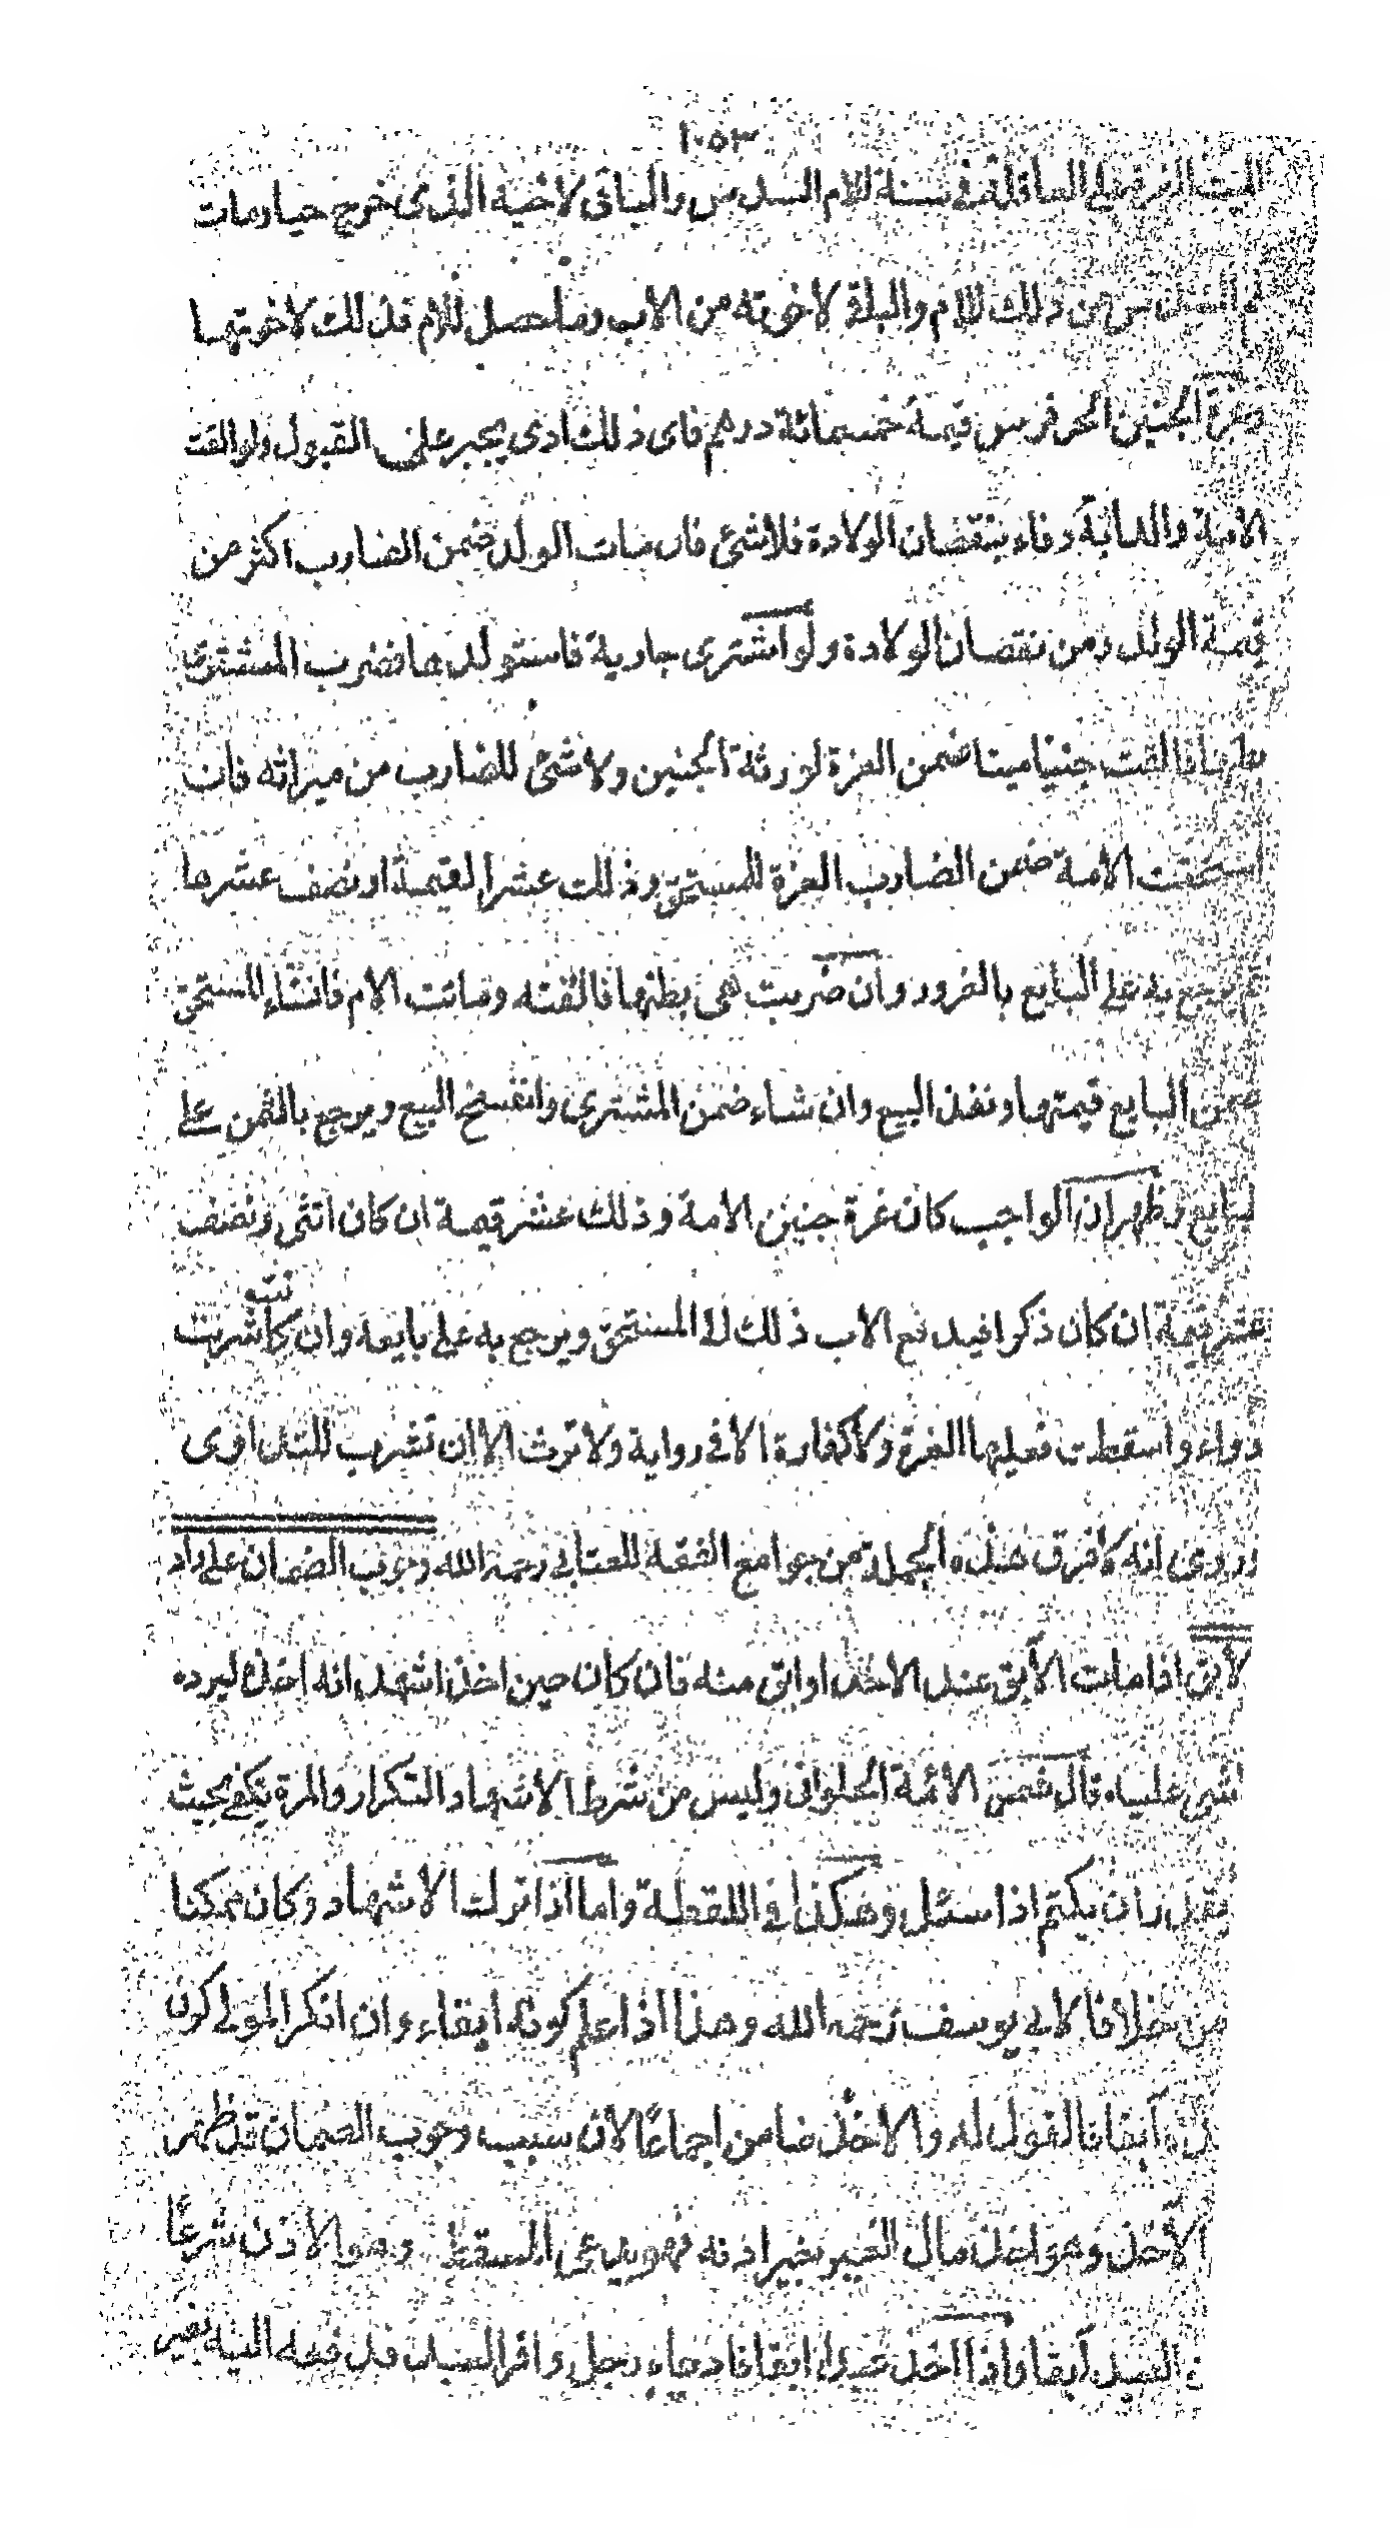 ١٠٥٣
الميت الغرة على العاقلة في سنة للام السدس والباقي لاخيه الذي خرج حيا ومات
السدس من ذلك للام والبلة لاخوته من الاب وما حصل للام فذلك لاخوتها
وغرة الجنين الحر فرس قيمة خمسمائة درهم فاى ذلك ادى يجبر على القبول ولو القت
الامة والدابة وفاء بنقصان الولادة فلاشئ فان مات الولد ضمن الضارب اكثر من
قيمة الولد ومن نقصان الولادة ولو اشترى جارية فاستولدها فضرب المشترى
بطنها فالقت جنينا ميتا ضمن الغرة لورثة الجنين ولا شئ للضارب من ميراثه فان
استحقت الامة ضمن الضارب الغرة للمستحق وذلك عشر القيمة او نصف عشرها
يرجع به على البايع بالغرور وان ضربت هى بطنها فالقته وماتت الام فانشاء المستحق
ضمن البايع قيمتها ونفذ البيع وان شاء ضمن المشترى وانفسخ البيع ويرجع بالثمن على
البايع وظهر ان الواجب كان غرة جنين الامة وذلك عشر قيمة ان كان انثى ونصف
عشر قيمة ان كان ذكرا فيدفع الاب ذلك الى المستحق ويرجع به على بايعه وان كانت شربت
دواء واسقطت فعليها الغرة ولا كفارة الا في رواية ولا ترث الا ان تشرب للتداوى
وروى انه لا فرق هذه الجملة من جوامع الفقه للعتابى رحمه الله وجوب الضمان على راد
الآبق اذا مات الآبق عند الاخذ او ابق منه فان كان حين اخذ اشهد انه اخذه ليرده
شئ عليه قال شمس الائمة الحلوانى وليس من شرط الاشهاد التكرار والمرة يكفى بحيث
يقدر ان يكتم اذا سئل وهكذا في اللقطة واما اذا ترك الاشهاد وكان ممكنا
من خلافا لابى يوسف رحمه الله وهذا اذا علم كونه ابقاء وان انكر المولى كون
آبقا فالقول له والاخذ ضامن اجماعا لان سبب وجوب الضمان قد ظهر
الآخذ وهو اخذ مال الغير بغير اذنه فهو يدعى المسقط وهو الاذن شرعا
العبد آبقا واذا اخذ عبدا ابقا فادعاه رجل واقر العبد فدفعه اليه بغير